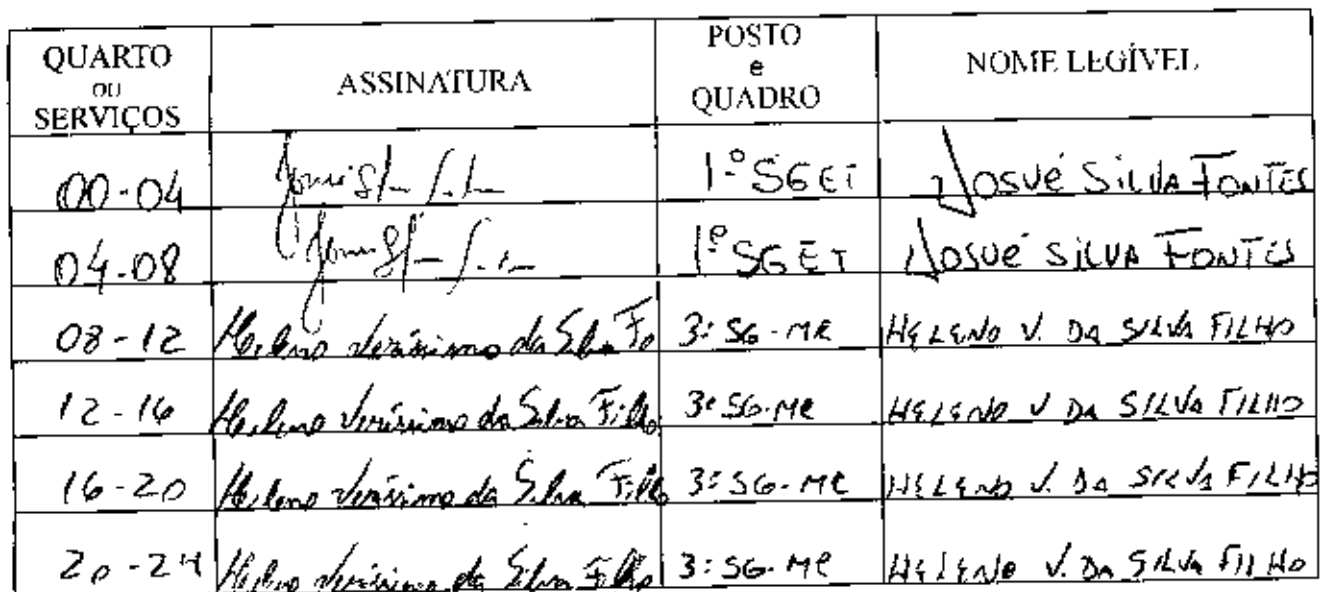 QUARTO ou SERVIÇOS ASSINATURA POSTO e QUADRO NOME LEGÍVEL
00-04 1º SG ET JOSUÉ SILVA FONTES
04-08 1º SG ET JOSUÉ SILVA FONTES
08-12 Heleno Veríssimo da Silva Fo 3º SG-MR HELENO V. DA SILVA FILHO
12-16 Heleno Veríssimo da Silva Filho 3º SG-MR HELENO V DA SILVA FILHO
16-20 Heleno Veríssimo da Silva Filho 3º SG-MR HELENO V. DA SILVA FILHO
20-24 Heleno Veríssimo da Silva Filho 3º SG-MR HELENO V. DA SILVA FILHO